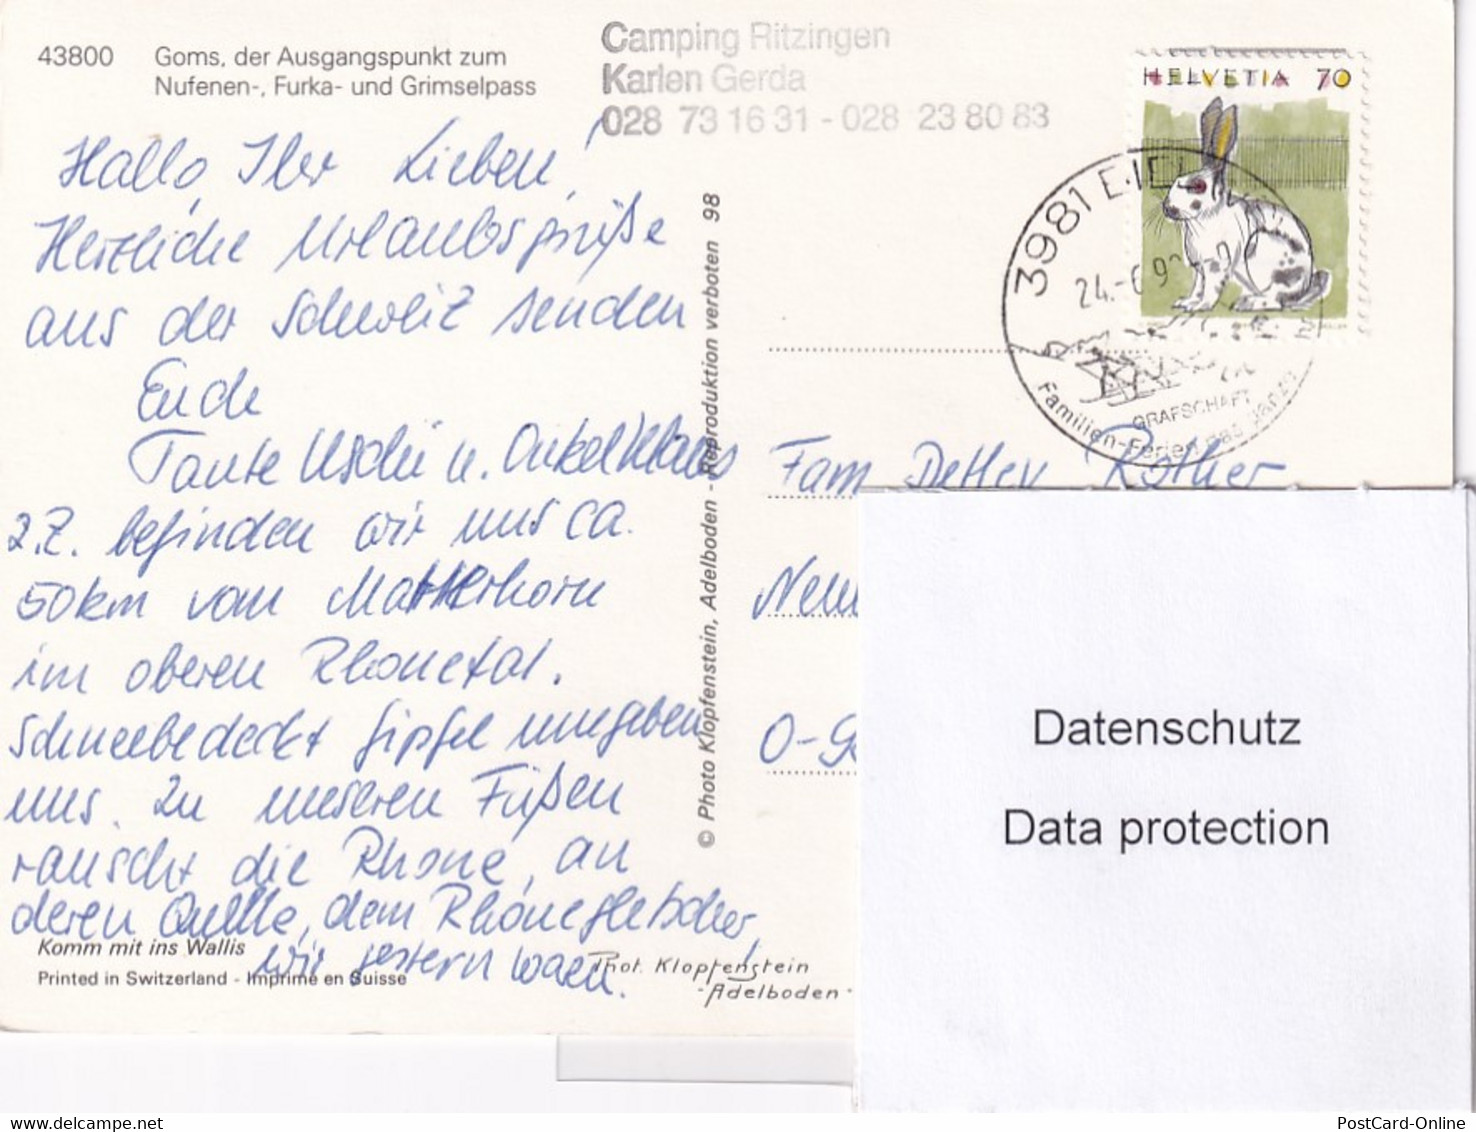 43800 Goms, der Ausgangspunkt zum
Nufenen-, Furka- und Grimselpass
Camping Ritzingen
Karlen Gerda
028 73 16 31 - 028 23 80 83
HELVETIA 70
3981
24.-6.9
GRAFSCHAFT
Familien-Ferien das ganze
Hallo, Ihr Lieben!
Herzliche Urlaubsgrüße
aus der Schweiz senden
Euch
Tante Uschi u. Onkel Klaus
z.Z. befinden wir uns ca.
50km vom Matterhorn
im oberen Rhonetal.
Schneebedeckt Gipfel umgeben
uns. Zu unseren Füßen
rauscht die Rhone, an
deren Quelle, dem Rhonegletscher,
wir gestern waren!
Komm mit ins Wallis
Printed in Switzerland - Imprimé en Suisse
Phot. Klopfenstein
- Adelboden -
© Photo Klopfenstein, Adelboden - Reproduktion verboten 98
Fam Detlev Rother
O-
Datenschutz
Data protection
PostCard-Online
www.delcampe.net